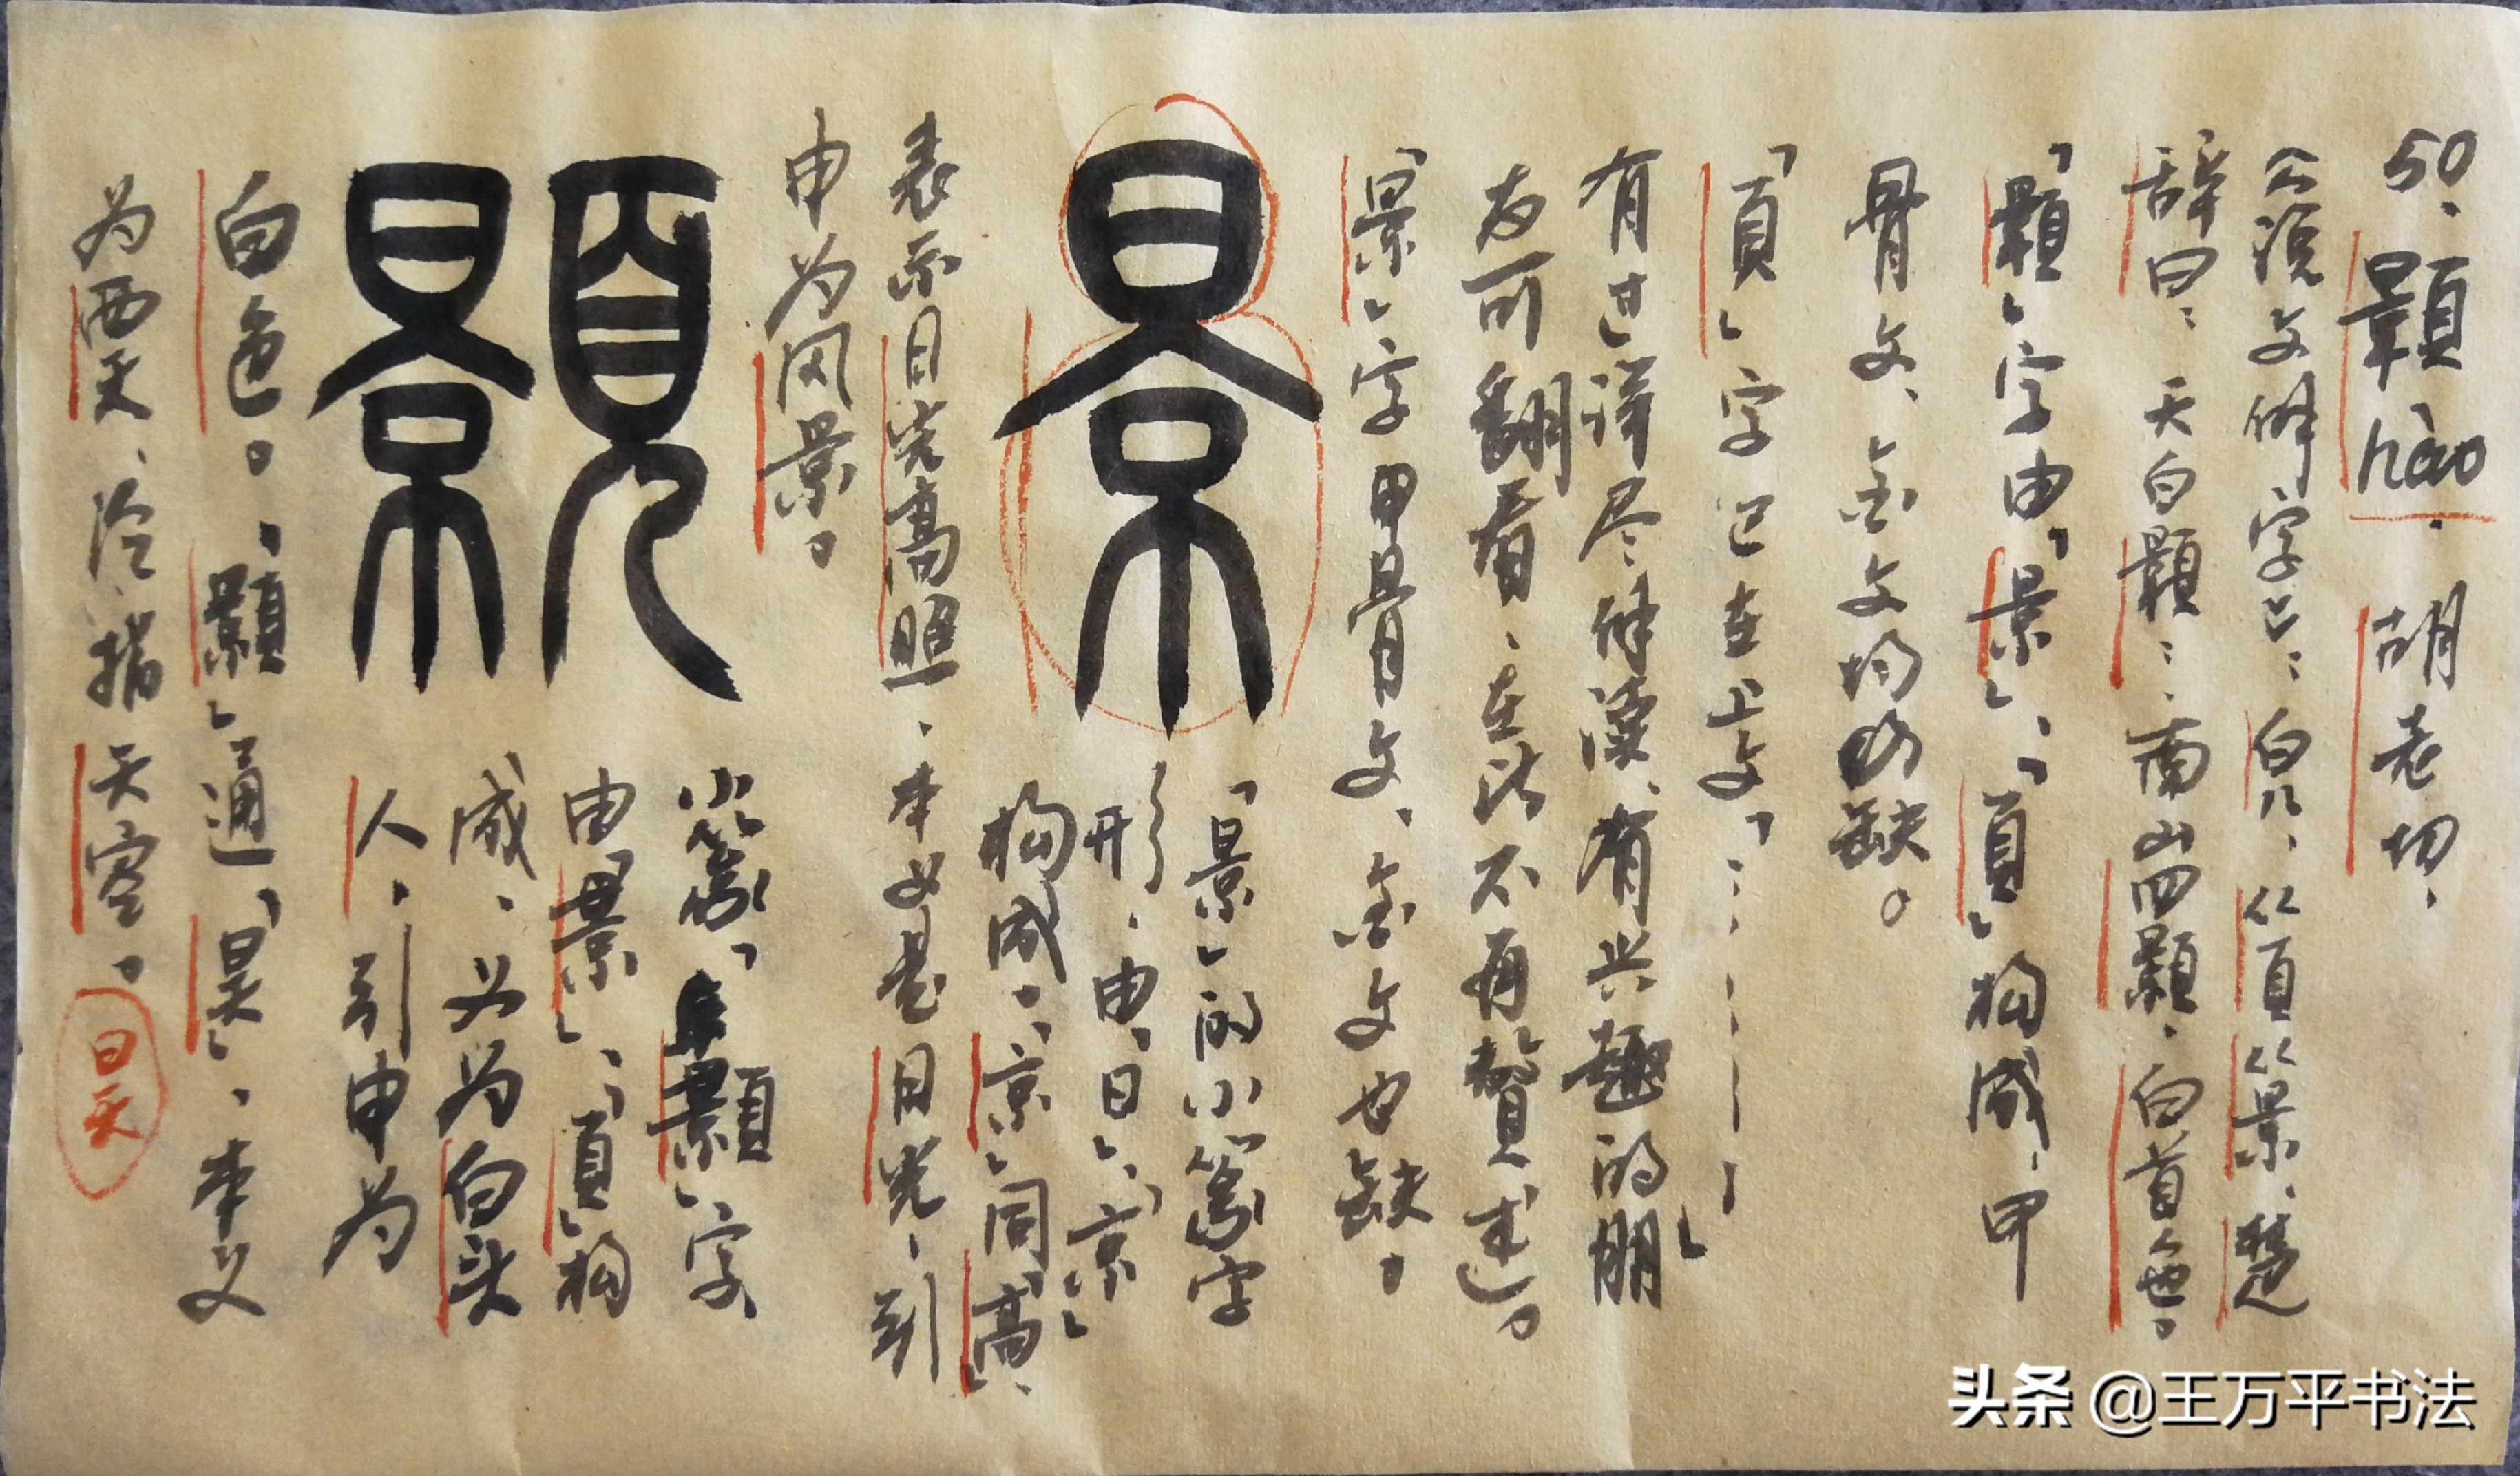 50、顥hào、胡老切、
《说文解字》：白皃、从頁从景、楚
辞曰：天白顥：、南山四顥、白首色。
「顥」字由「景」、「頁」构成、甲
骨文、金文均缺。
「頁」字已在上文「
」有过详尽解读、有兴趣的朋
友可翻看、在此不再赘述。
「景」字甲骨文、金文也缺。
景
「景」的小篆字
形、由「日」、「京」
构成。「京」同「高」、
表示日光高照、本义是日光、引
申为风景。
顥
小篆「顥」字
由「景」、「頁」构
成、义为白头
人、引申为
白色。「顥」通「昊」、本义
为西天、泛指天空。
日天
头条 @王万平书法